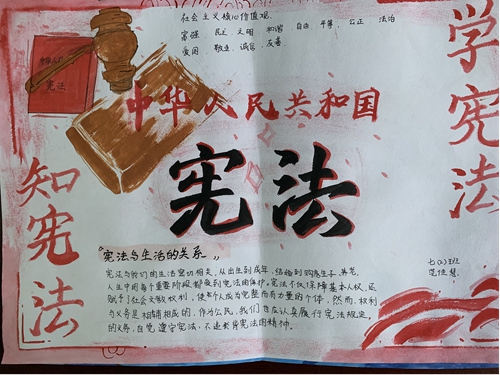 社会主义核心价值观
富强 民主 文明 和谐 自由 平等 公正 法治
爱国 敬业 诚信 友善
宪法
中华人民共和国
宪法
学宪法
知宪法
"宪法与生活的关系"
宪法与我们的生活密切相关,从出生到成年,结婚到购房生子、养老,
人生中的每个重要阶段都受到宪法的保护,宪法不仅保障基本人权,还
赋予社会文教权利,使每个人成为完整而有力量的个体,然而,权利
与义务是相辅相成的,作为公民,我们也应认真履行宪法规定
的义务,自觉遵守宪法,不违背宪法的精神。
七(2)班